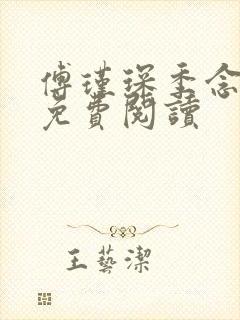 傅瑾琛季念
免費閱讀
王藝潔